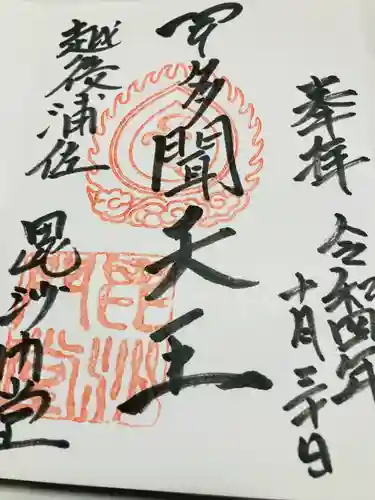 奉拝
令和四年
十月三十日
多聞天王
越後浦佐
毘沙門堂